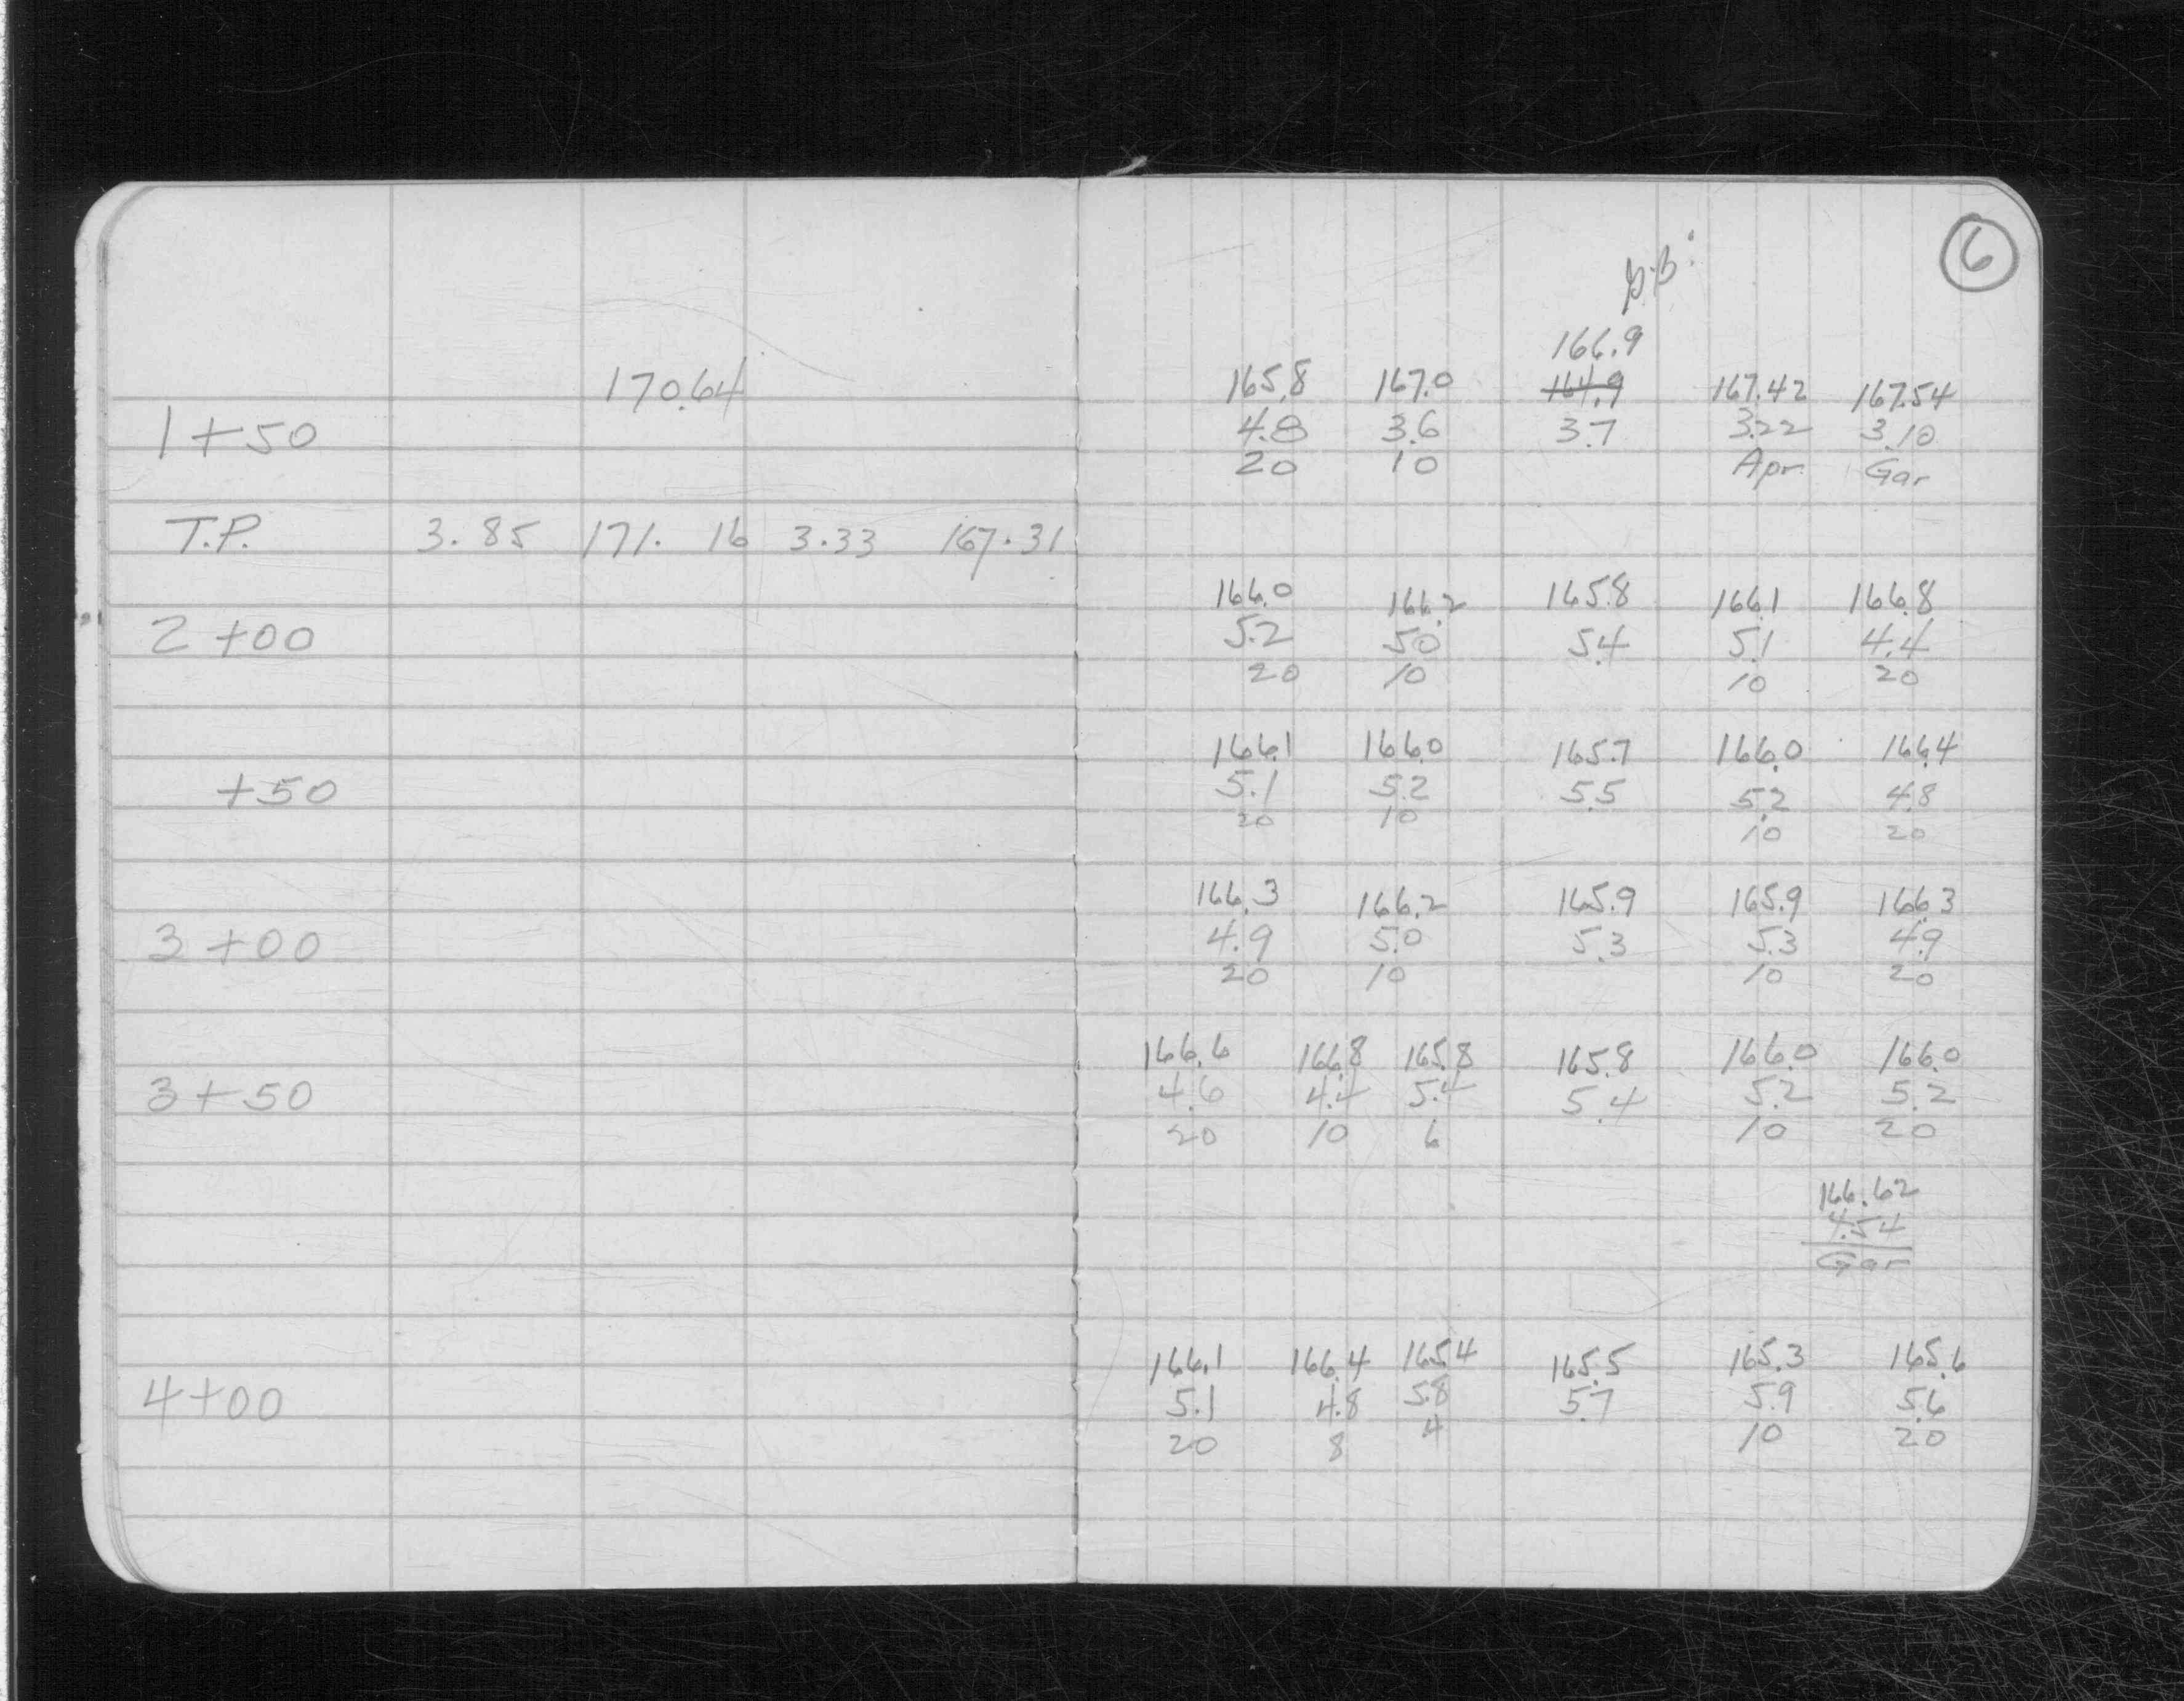 6
B.B.
166.9
170.64 165.8 167.0 164.9 167.42 167.54
1+50 4.8 3.6 3.7 3.22 3.10
20 10 Apr. Gar
T.P. 3.85 171.16 3.33 167.31
166.0 166.2 165.8 166.1 166.8
2+00 5.2 5.0 5.4 5.1 4.4
20 10 10 20
166.1 166.0 165.7 166.0 166.4
+50 5.1 5.2 5.5 5.2 4.8
20 10 10 20
166.3 166.2 165.9 165.9 166.3
3+00 4.9 5.0 5.3 5.3 4.9
20 10 10 20
166.6 166.8 165.8 165.8 166.0 166.0
3+50 4.6 4.4 5.4 5.4 5.2 5.2
20 10 6 10 20
166.62
4.54
Gar
166.1 166.4 165.4 165.5 165.3 165.6
4+00 5.1 4.8 5.8 5.7 5.9 5.6
20 8 4 10 20